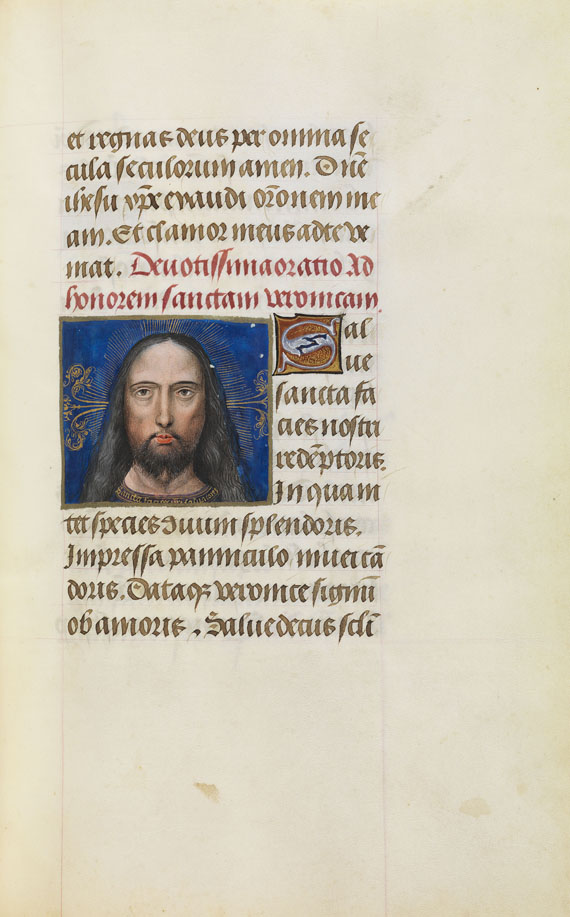 et regnas deus per omnia se
cula seculorum amen. Dn̄e
ihesu xp̄e exaudi orōnem me
am. Et clamor meus ad te ve
niat. Devotissima oratio Ad
honorem sanctam veronicam.
Sal
ue
sancta fa
cies nostri
redēptoris.
In qua ni
tet species diuini splendoris.
Impressa panniculo niuei cā
doris. Dataqꝫ veronice signū
ob amoris. Salue decus sc̄li